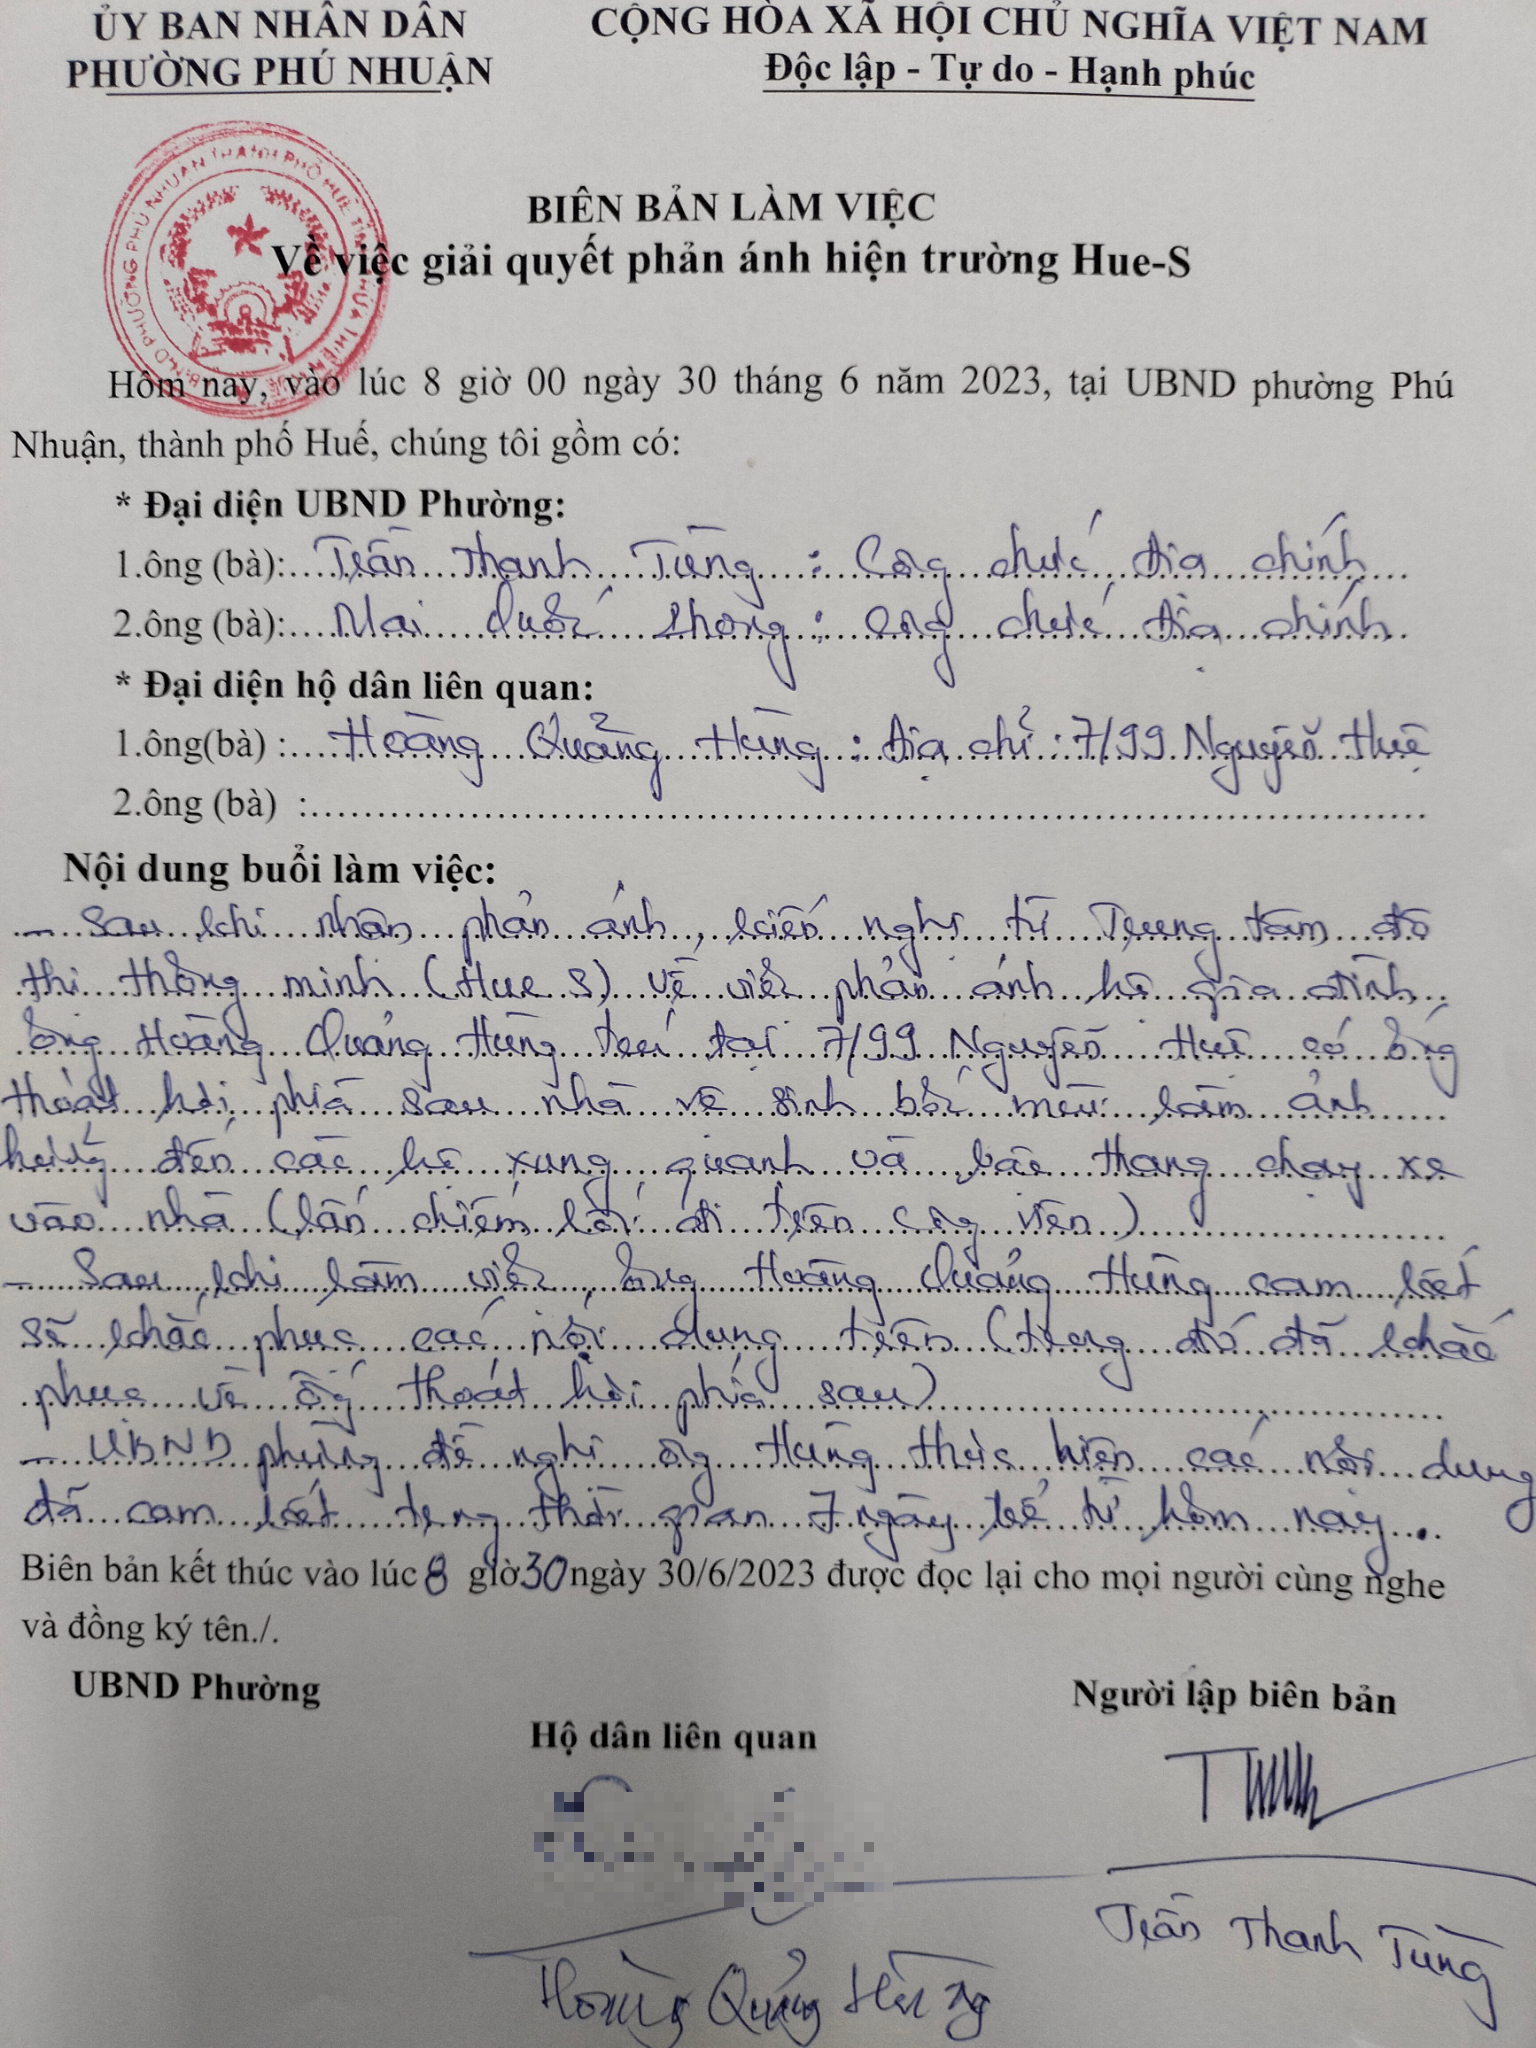 ỦY BAN NHÂN DÂN
PHƯỜNG PHÚ NHUẬN
CỘNG HÒA XÃ HỘI CHỦ NGHĨA VIỆT NAM
Độc lập - Tự do - Hạnh phúc
BIÊN BẢN LÀM VIỆC
Về việc giải quyết phản ánh hiện trường Hue-S
Hôm nay, vào lúc 8 giờ 00 ngày 30 tháng 6 năm 2023, tại UBND phường Phú
Nhuận, thành phố Huế, chúng tôi gồm có:
* Đại diện UBND Phường:
1.ông (bà):....Trần Thanh Tùng : Công chức địa chính
2.ông (bà):....Mai Quốc Phong : Công chức địa chính
* Đại diện hộ dân liên quan:
1.ông(bà) :....Hoàng Quảng Hùng : địa chỉ : 7/99 Nguyễn Huệ
2.ông (bà) :....
Nội dung buổi làm việc:
- Sau khi nhận phản ánh, kiến nghị từ Trung tâm đô
thị thông minh (Hue S) về việc phản ánh hộ gia đình
ông Hoàng Quảng Hùng trú tại 7/99 Nguyễn Huệ có ống
thoát hơi phía sau nhà vệ sinh bốc mùi làm ảnh
hưởng đến các hộ xung quanh và bắc thang chạy xe
vào nhà (lấn chiếm lối đi trên công viên)
- Sau khi làm việc, ông Hoàng Quảng Hùng cam kết
sẽ khắc phục các nội dung trên (trong đó đã khắc
phục về ống thoát hơi phía sau)
- UBND phường đề nghị ông Hùng thực hiện các nội dung
đã cam kết trong thời gian 7 ngày kể từ hôm nay.
Biên bản kết thúc vào lúc 8 giờ 30 ngày 30/6/2023 được đọc lại cho mọi người cùng nghe
và đồng ký tên./.
UBND Phường
Hộ dân liên quan
Người lập biên bản
Trần Thanh Tùng
Hoàng Quảng Hùng